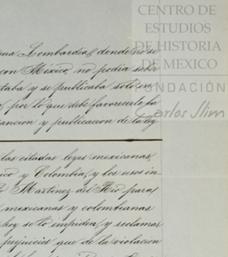 CENTRO DE
ESTUDIOS
DE HISTORIA
DE MEXICO
FUNDACIÓN
Carlos Slim
Lombardia, donde no se
con México, no podia
taba y se publicaba solo en
por lo que debe favorecerle la
sancion y publicacion de la ley
las citadas leyes mexicanas,
ico y Colombia, y los usos en
Martinez del Rio para
mexicanas y colombianas
hoy se lo impiden, y reclamar
prejuicios que de la violacion